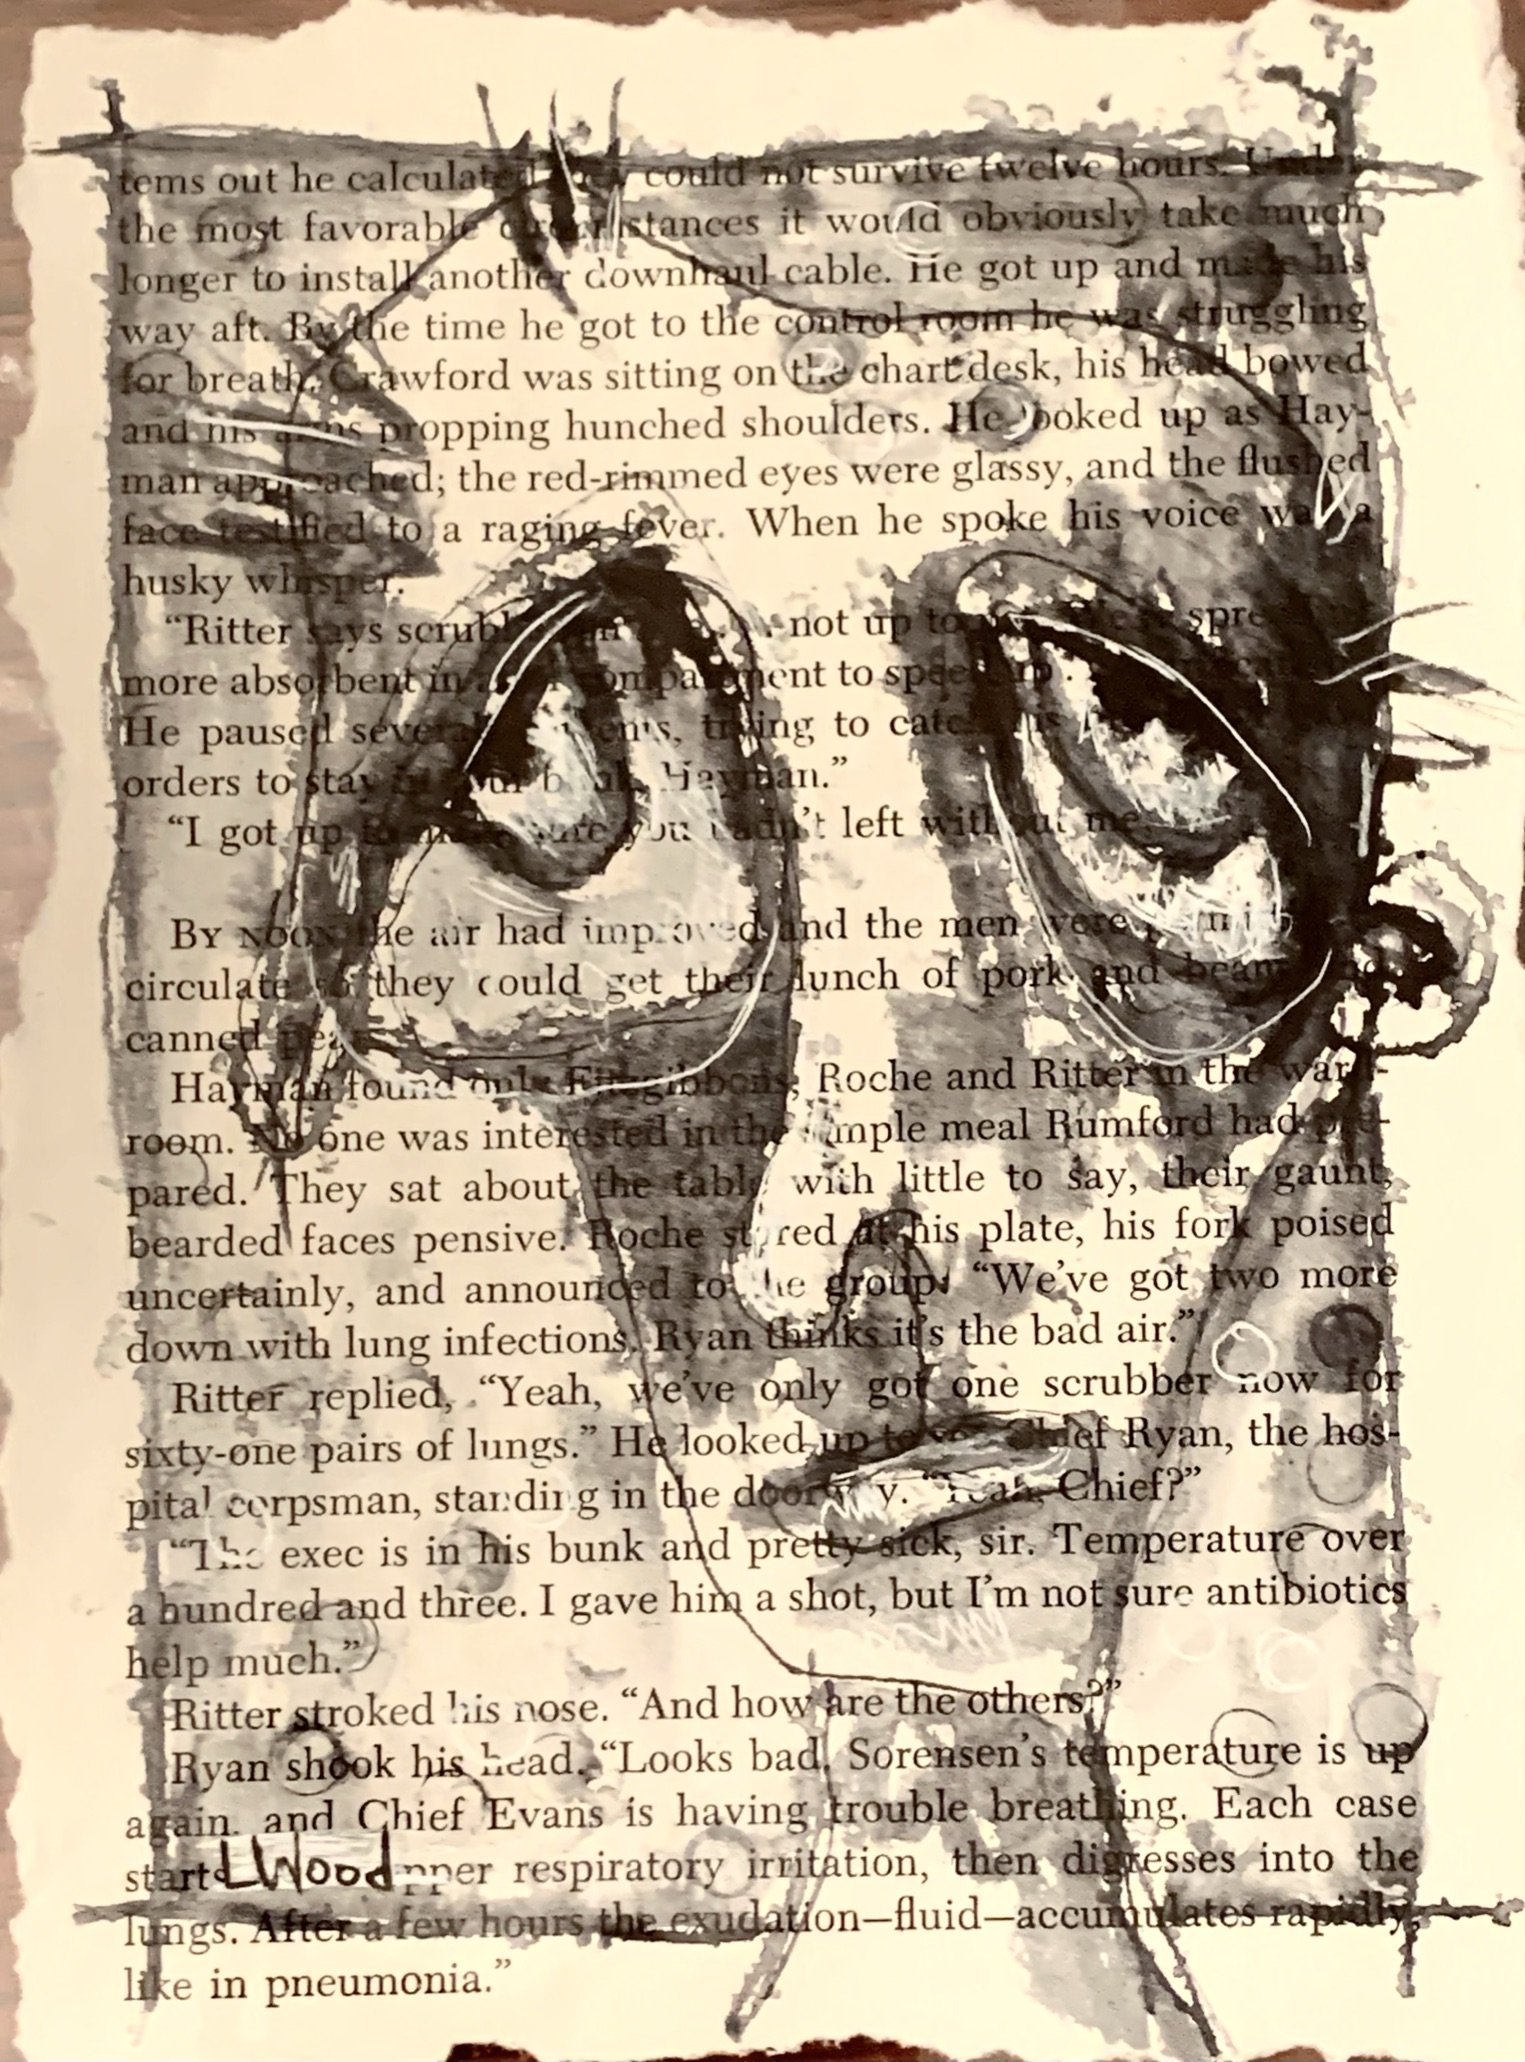 tems out he calculated they could not survive twelve hours. Under
the most favorable circumstances it would obviously take much
longer to install another downhaul cable. He got up and made his
way aft. By the time he got to the control room he was struggling
for breath. Crawford was sitting on the chart desk, his head bowed
and his arms propping hunched shoulders. He looked up as Hay-
man approached; the red-rimmed eyes were glassy, and the flushed
face testified to a raging fever. When he spoke his voice was a
husky whisper.
“Ritter says scrub not up to spre
more absorbent in compartment to speed up
He paused several moments, trying to catch his
orders to stay in your bunk, Hayman.”
“I got up to make sure you hadn't left without me
By noon the air had improved and the men were
circulate so they could get their lunch of pork and beans and
canned pears.
Hayman found only Fitzgibbons, Roche and Ritter in the ward-
room. No one was interested in the simple meal Rumford had pre-
pared. They sat about the table with little to say, their gaunt,
bearded faces pensive. Roche stared at his plate, his fork poised
uncertainly, and announced to the group: “We've got two more
down with lung infections. Ryan thinks it's the bad air.”
Ritter replied, “Yeah, we've only got one scrubber now for
sixty-one pairs of lungs.” He looked up to see Chief Ryan, the hos-
pital corpsman, standing in the doorway. “Yeah, Chief?”
“The exec is in his bunk and pretty sick, sir. Temperature over
a hundred and three. I gave him a shot, but I'm not sure antibiotics
help much.”
Ritter stroked his nose. “And how are the others?”
Ryan shook his head. “Looks bad. Sorensen's temperature is up
again, and Chief Evans is having trouble breathing. Each case
start LWood pper respiratory irritation, then digresses into the
lungs. After a few hours the exudation—fluid—accumulates rapidly,
like in pneumonia.”